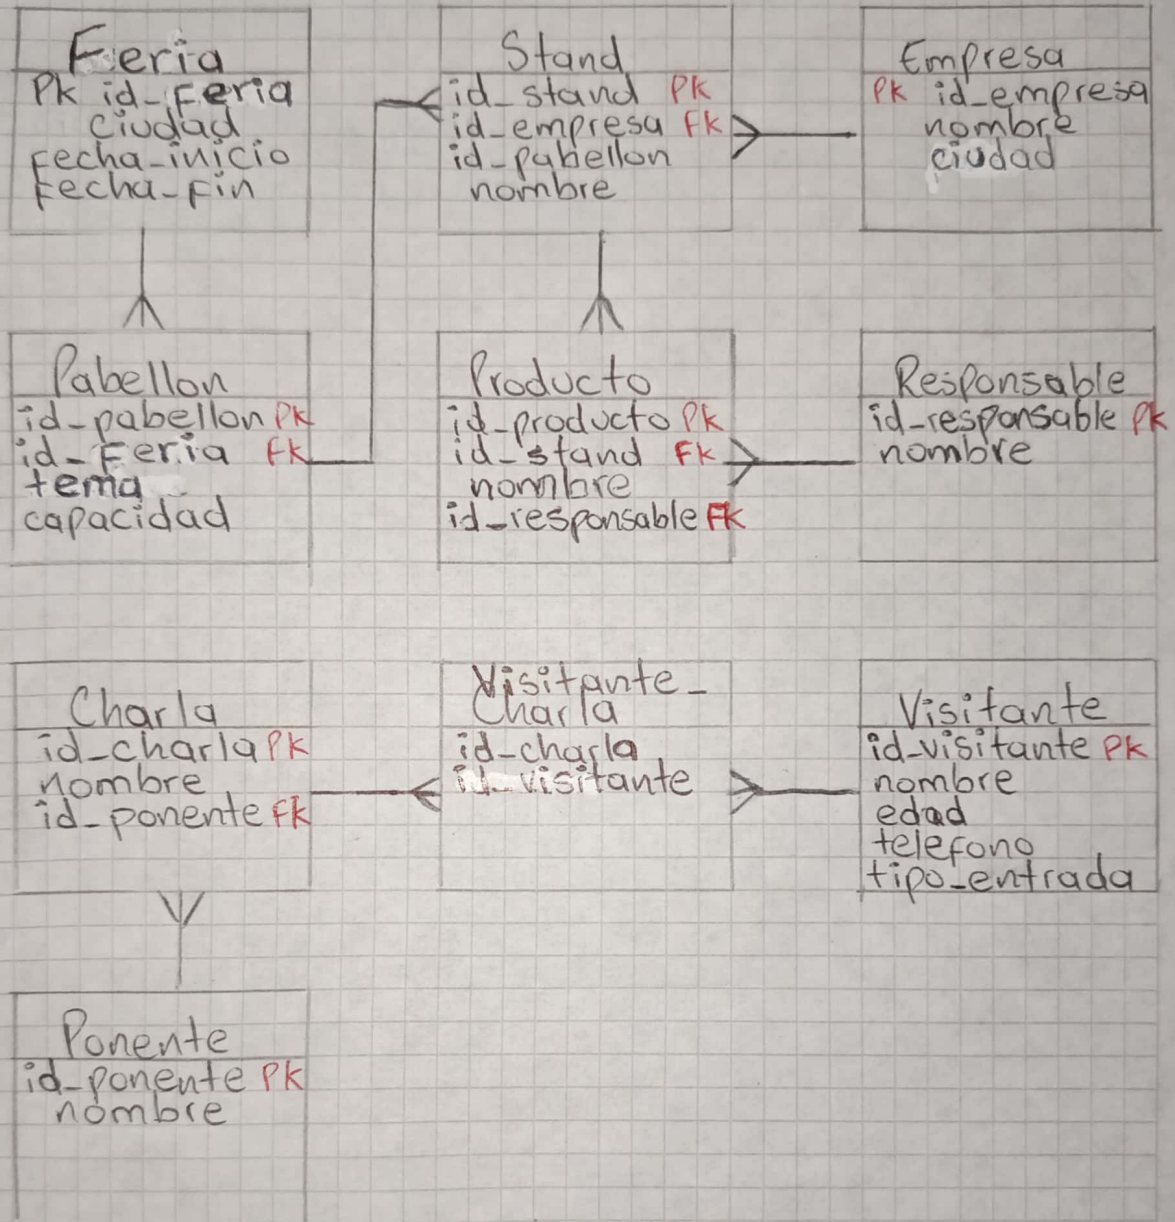 Feria
Pk id_Feria
ciudad
Fecha_inicio
Fecha_Fin
Stand
id_stand PK
id_empresa FK
id_pabellon
nombre
Empresa
PK id_empresa
nombre
ciudad
Pabellon
id_pabellon PK
id_Feria FK
tema
capacidad
Producto
id_producto PK
id_stand FK
nombre
id_responsable FK
Responsable
id_responsable PK
nombre
Charla
id_charla PK
nombre
id_ponente FK
Visitante_
Charla
id_charla
id_visitante
Visitante
id_visitante PK
nombre
edad
telefono
tipo_entrada
Ponente
id_ponente PK
nombre